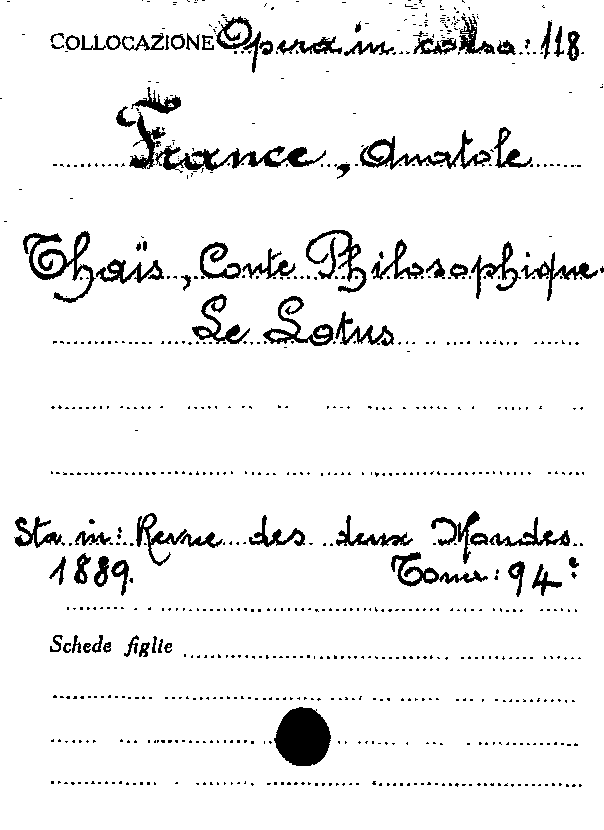 COLLOCAZIONE Opera in corso: 118
France, Anatole
Thaïs, Conte Philosophique.
Le Lotus
Sta in: Revue des deux Mondes
1889. Tome: 94e
Schede figlie